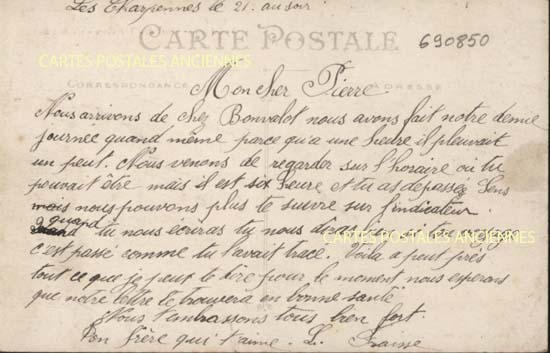 Les Charpennes le 21. au soir
CARTE POSTALE
690850
CARTES POSTALES ANCIENNES
CORRESPONDANCE
ADRESSE
Mon cher Pierre
Nous arrivons de chez Bonvalot nous avons fait notre demie
journée quand même parce qu'a une heure il pleuvait
un peut. Nous venons de regarder sur l'horaire ou tu
pouvait être mais il est six heure et tu as depassé Sens
mais nous pouvons plus te suivre sur l'indicateur
quand tu nous ecriras tu nous diras si
CARTES POSTALES ANCIENNES
c'est passé comme tu t'avait tracé. Voila a peut près
tout ce que je peux te dire pour le moment nous esperons
que notre lettre te trouvera en bonne santé
Nous t'embrassons tous bien fort.
Ton frère qui t'aime. L.